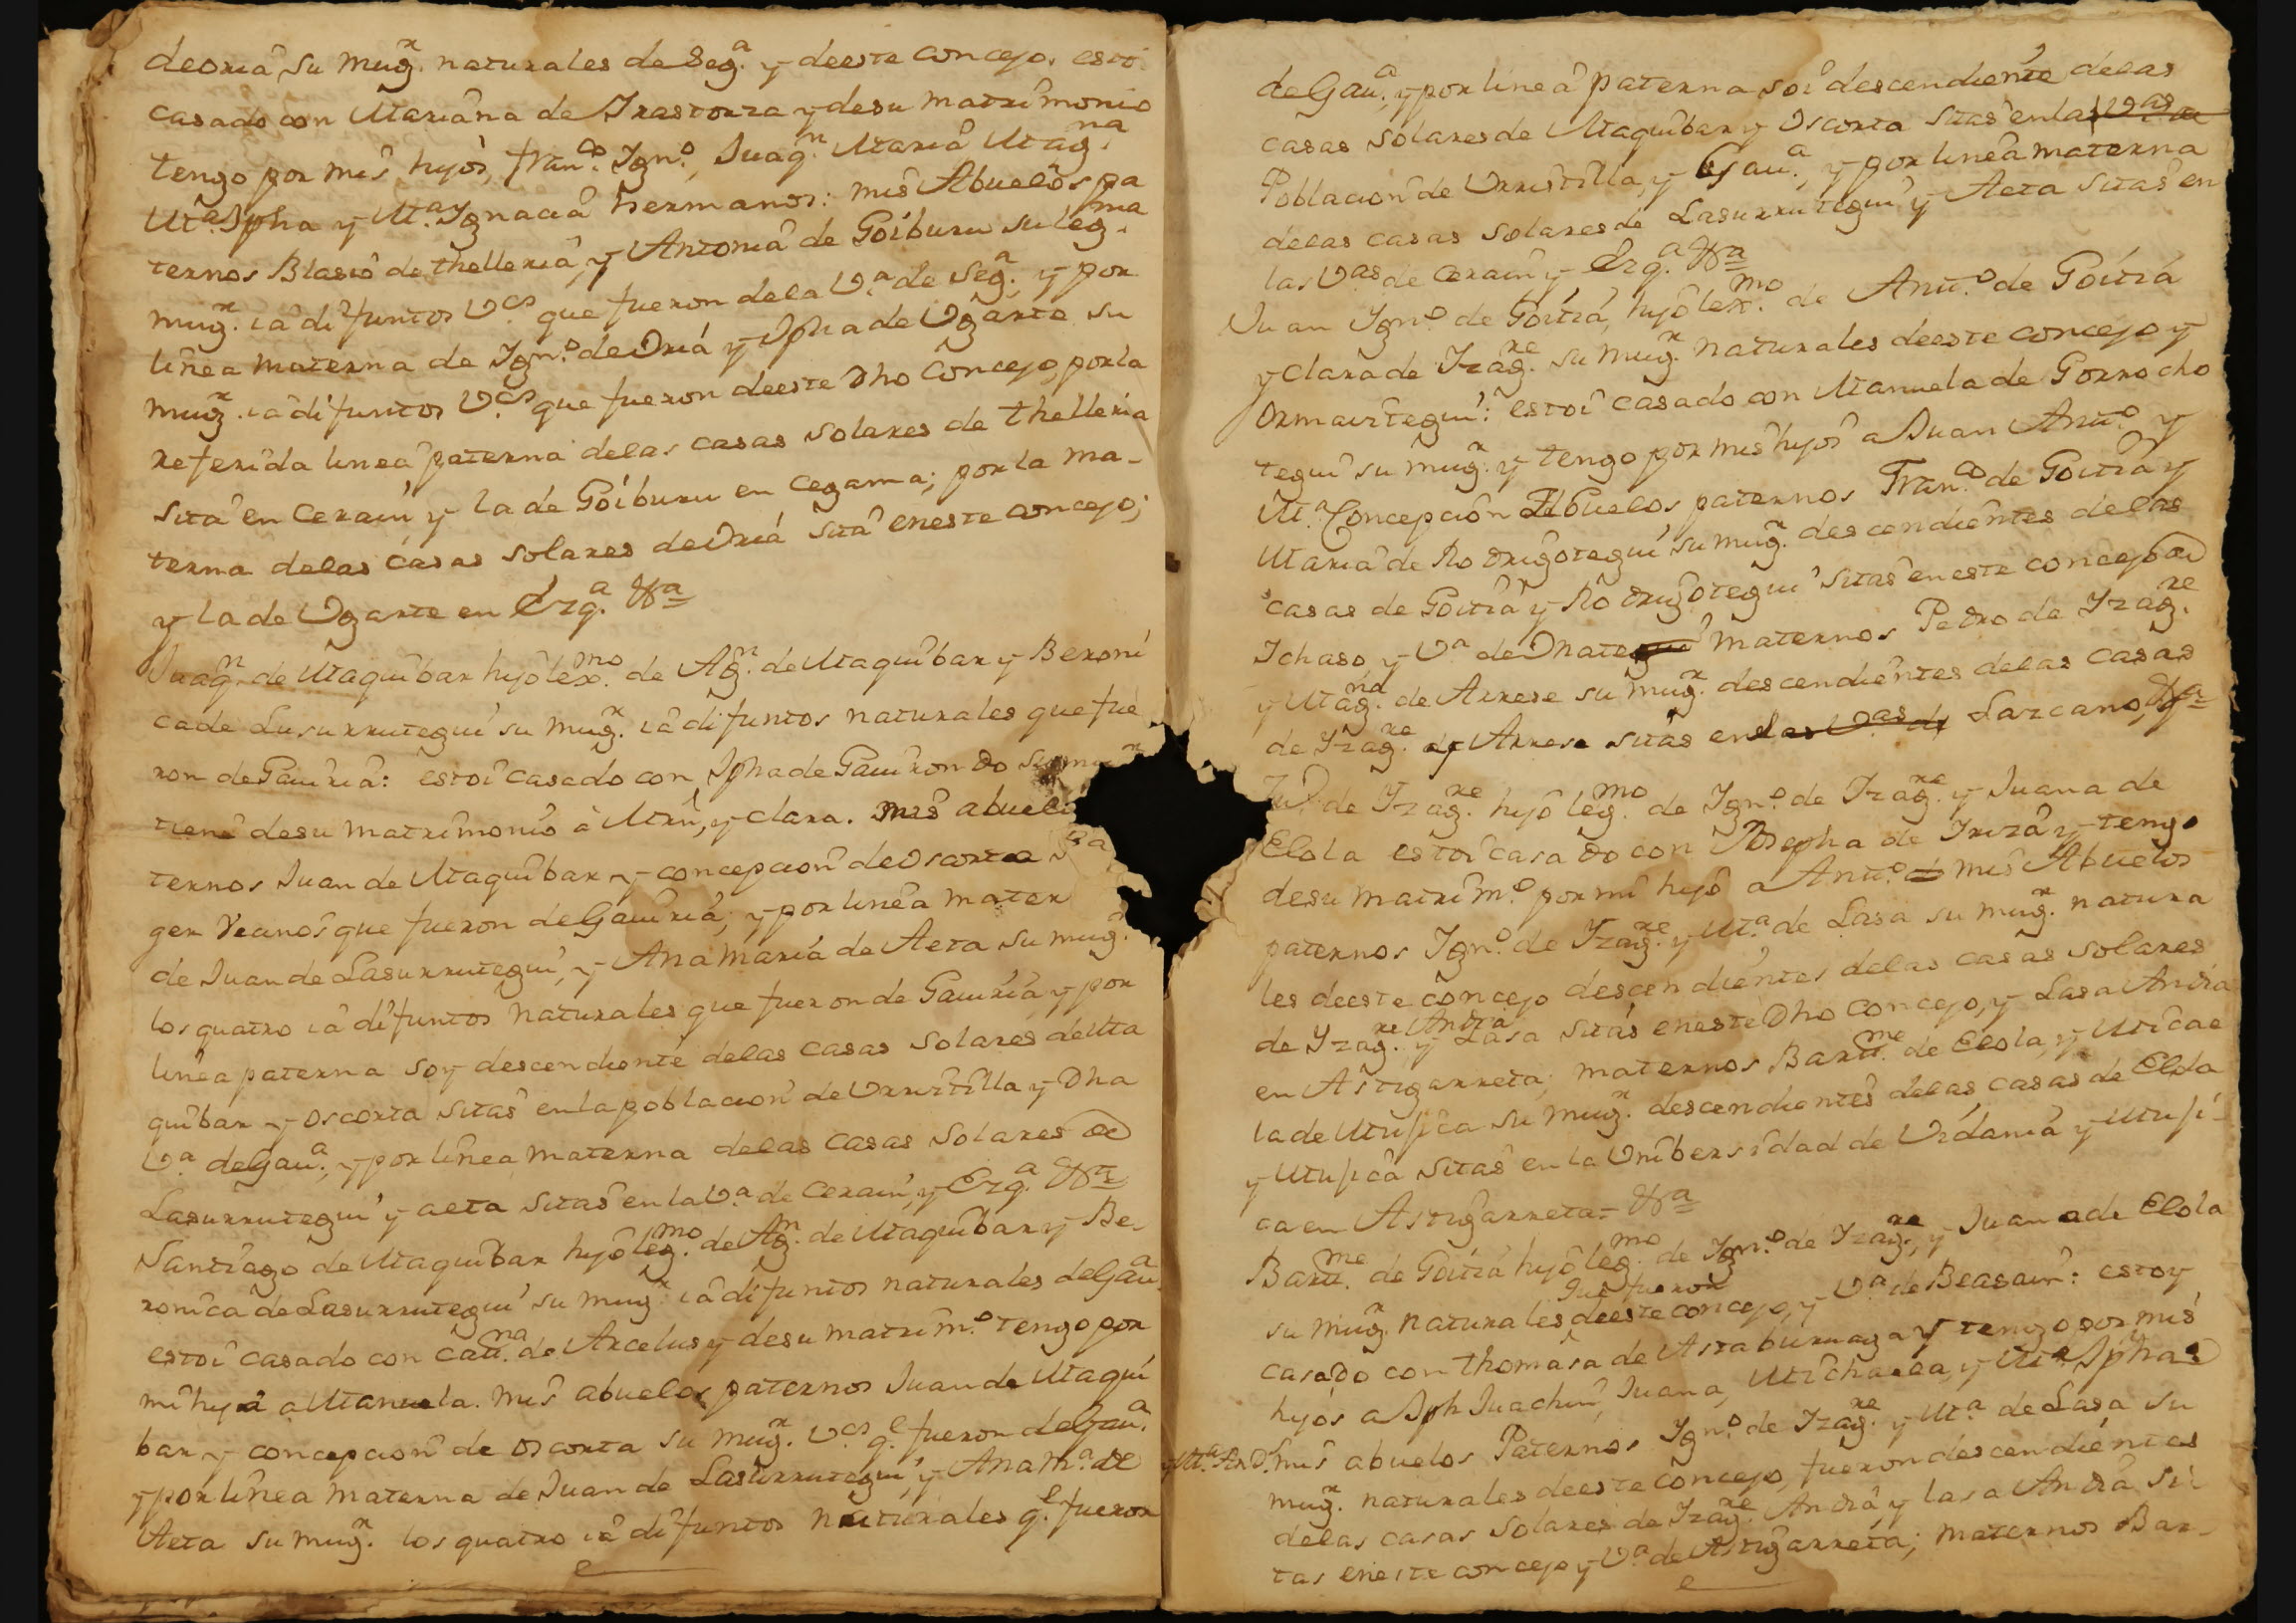 deoria su mugr. naturales de Sega. y deeste concejo. estoi
casado con Mariana de Irastorza y desu matrimonio
tengo por mis hijos, franco. Igno., Juaqn. Maria Magna.
Ma. Jpha y Ma. Ignacia hermanos: mis Abuelos pa
ternos Blasio de thelleria, y Antonia de Goiburu su legma.
mugr. ia difuntos Vcos que fueron dela Va. de Sega., y por
linea materna de Igno. de Oria y Jpha de Ugarte su
mugr. ia difuntos Vcos que fueron deeste dho Concejo, por la
referida linea paterna delas casas solares de thelleria
sita en Cerain y la de Goiburu en Cegama; por la ma-
terna delas casas solares de Oria sita eneste concejo;
y la de Ugarte en Ezqa. Na
Juaqn. de Maquibar hijo lexmo. de Agn. de Maquibar y Beroni
ca de Lusurrutegui su mugr. ia difuntos naturales que fue
ron de Gauiria: estoi casado con Jpha de Gauirondo su mugr
tiene desu matrimonio à Mrn, y Clara. mis abuelos
ternos Juan de Maquibar y concepcion de oscorta
ger Veanos que fueron de Gauiria; y por linea mater
de Juan de Lasurrutegui, y Ana maria de Aeta su mugr.
los quatro ia difuntos naturales que fueron de Gauiria y por
linea paterna soy descendiente delas casas solares de Ma
quibar y oscorta sitas enla poblacion de Urrestilla y Dha
Va. de Gaua., y por linea materna delas casas solares de
Lasurrutegui y aeta sitas en la Va. de Cerain, y Ezqa. Na
Santiago de Maquibar hijo legmo. de Agn. de Maquibar y Be-
ronica de Lasurrutegui su mugr. ia difuntos naturales de Gaua.
estoi casado con Catna. de Arcelus y desu matrimo. tengo por
mi hija a Manuela. mis abuelos paternos Juan de Maqui
bar y concepcion de oscorta su mugr. Vcos qe. fueron de Gaua.
y por linea materna de Juan de Lasurrutegui, y Ana Ma. de
Aeta su mugr. los quatro ia difuntos naturales qe. fueron
de Gaua., y por linea paterna soi descendiente delas
casas solares de Maquibar y Oscorta sitas en la Vas de
Poblacion de Urrestilla, y Gaua., y por linea materna
delas casas solares de Lasurrutegui y Aeta sitas en
las Vas de Cerain y Ezqa. Na
Juan Igno. de Goitia, hijo lexmo. de Anto. de Goitia
y Clara de Izagre. su mugr. naturales deeste concejo y
Ormaiztegui: estoi casado con Manuela de Gorrocho
tegui su mugr. y tengo por mis hijos a Juan Anto. y
Ma. Concepcion Abuelos paternos Franco. de Goitia y
Maria de Rodrigotegui su mugr. descendientes delas
casas de Goitia y Rodrigotegui sitas en este concejo de
Ichaso, y Va de Oñate maternos Pedro de Izagre.
y Magna. de Arrese su mugr. descendientes delas casas
de Izagre. y Arrese sitas en las Vas de Lazcano, Na
Jud. de Izagre. hijo legmo. de Igno. de Izagre. y Juana de
Elola estoi casado con Josepha de Iriza y tengo
desu matrimo. por mi hijo a Anto. mis Abuelos
paternos Igno. de Izagre. y Ma. de Lasa su mugr. natura
les deeste concejo descendientes delas casas solares
Andia
de Izagre. y Lasa sitas eneste Dho Concejo, y Lasa Andia
en Astigarreta; maternos Barme. de Elola, y Micae
la de Mujica su mugr. descendientes delas casas de Elola
y Mujica sitas en la Unibersidad de Vidania y Muji-
ca en Astigarreta= Na
Barme. de Goitia hijo legmo. de Igno. de Izagre., y Juana de Elola
que fueron
su mugr. naturales deeste concejo, y Va de Beasain: estoy
casado con thomasa de Astaburuaga y tengo por mis
hijos a Jph Juachin, Juana, Michaela, y Ma. Jpha
mis abuelos Paternos Igno. de Izagre. y Ma. de Lasa su
mugr. naturales deeste concejo, fueron descendientes
delas casas solares de Izagre. Andia, y lasa Andia si-
tas eneste concejo y Va. de Astigarreta; maternos Bar-